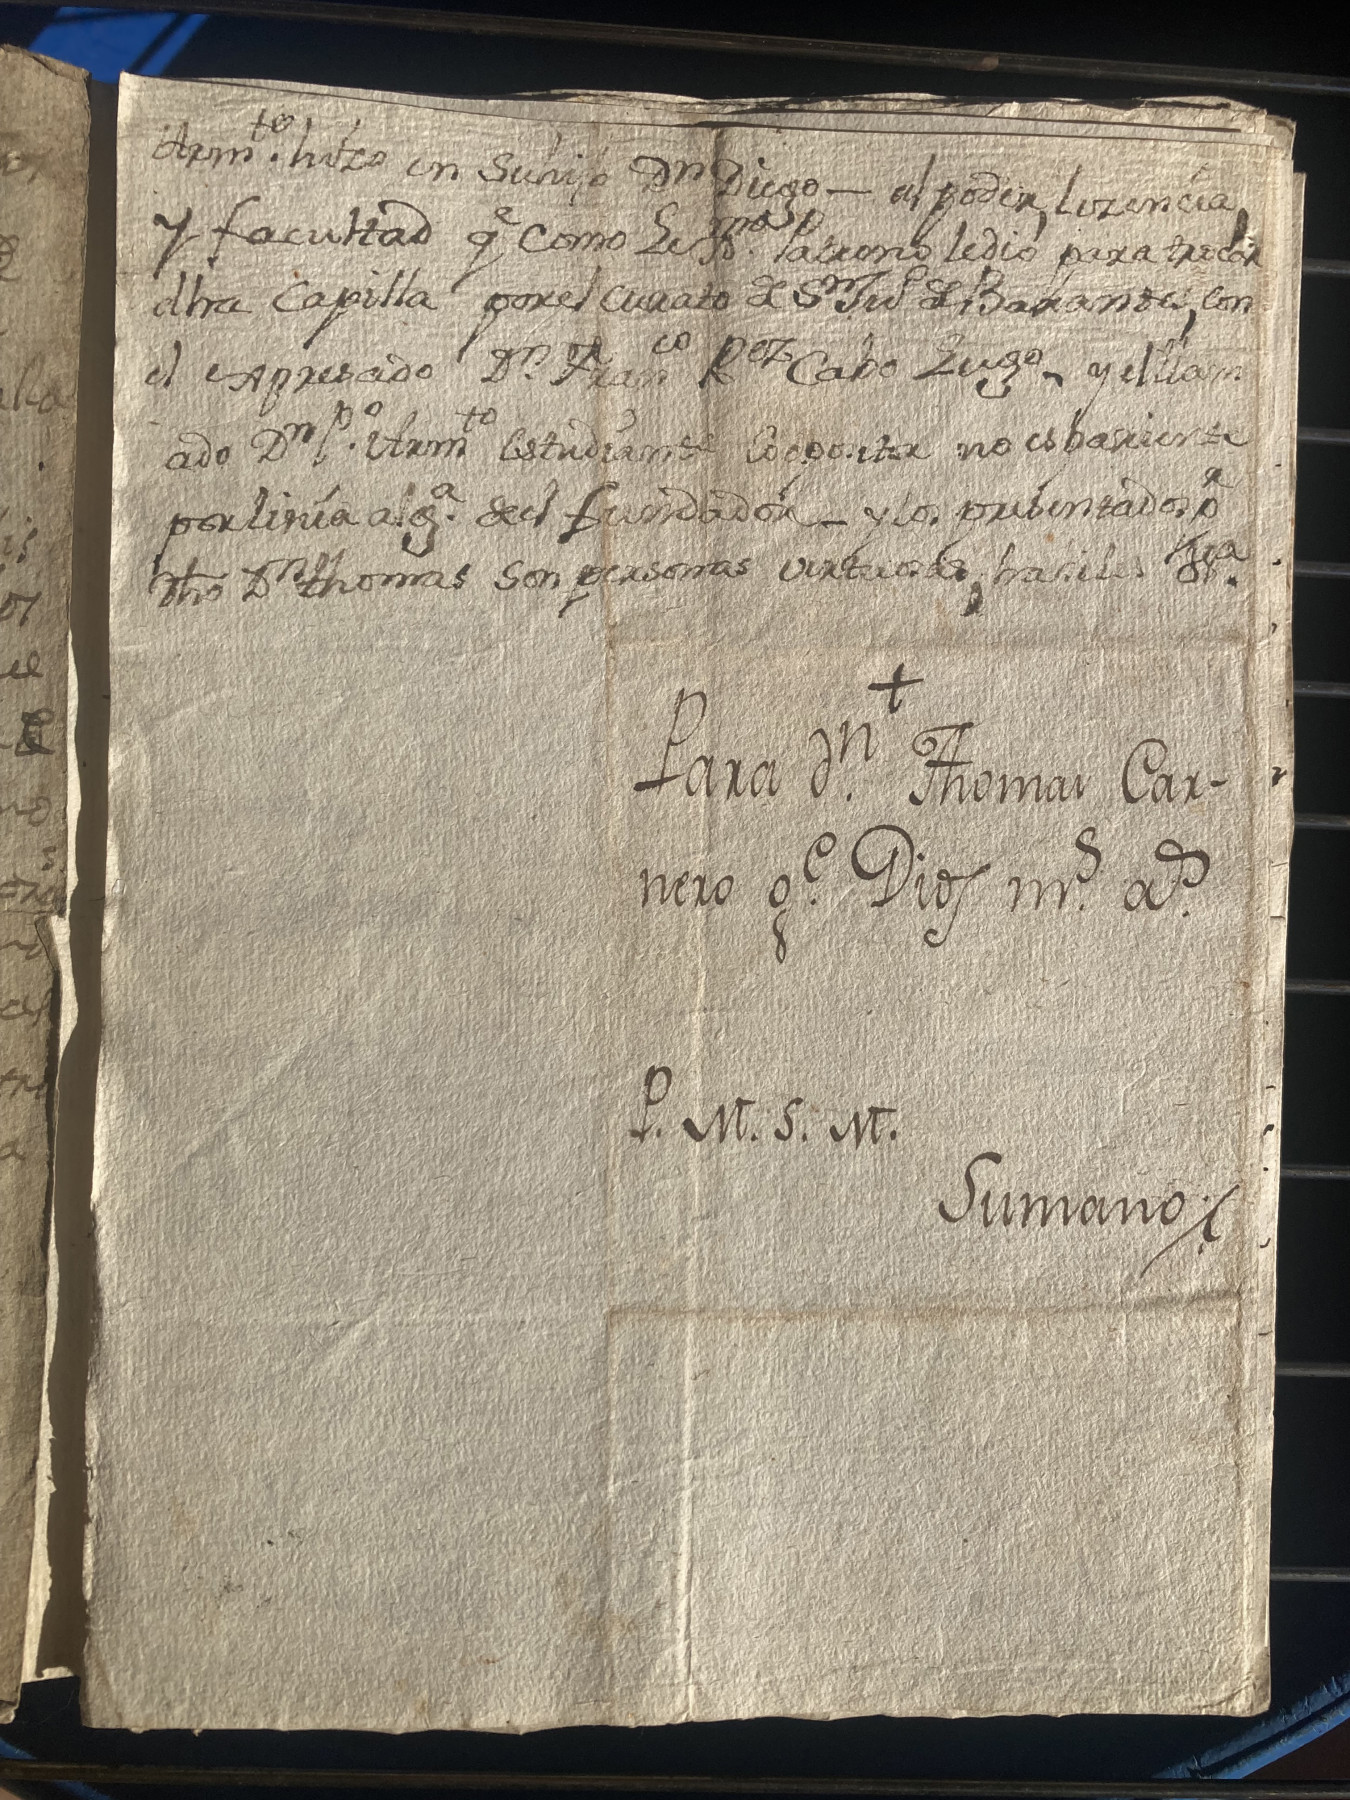 Armto. hizo en Su hijo Dn Diego — al poder, lizencia,
y facultad qe Como Lexmo. Patrono le dio para trocar
dha Capilla por el Curato de Sn Jul de Barantes, con
el expresado Dn. Franco Rez Cabo Lugo, y el llam
ado Dn P. Armto Estudiante Coopositor no es pariente
por linia alga. del fundador — y los presentados pr
dho Dn thomas Son personas virtuosas, habiles
+
Para dn. Thomas Car-
nero qe. Dios ms. as.
P. M. S. M.
Sumano